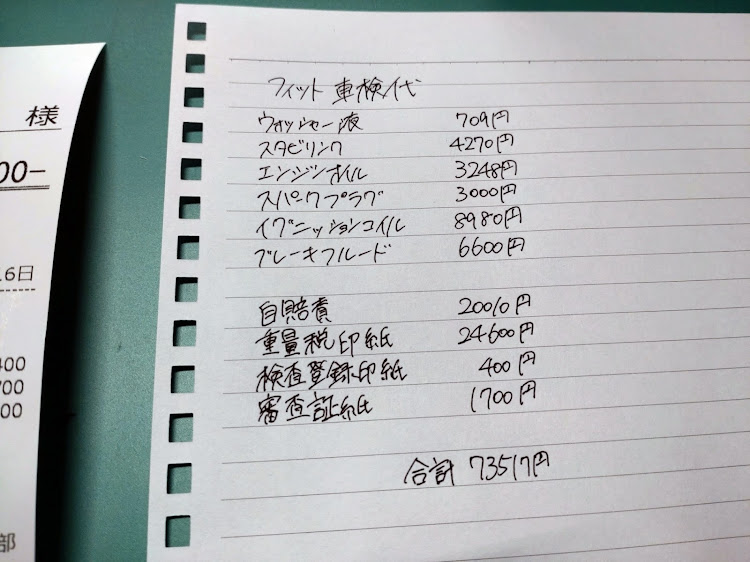 様
00-
16日
400
700
00
部
フィット 車検代
ウォッシャー液 709円
スタビリンク 4270円
エンジンオイル 3248円
スパークプラグ 3000円
イグニッションコイル 8980円
ブレーキフルード 6600円
自賠責 20010円
重量税印紙 24600円
検査登録印紙 400円
審査証紙 1700円
合計 73517円